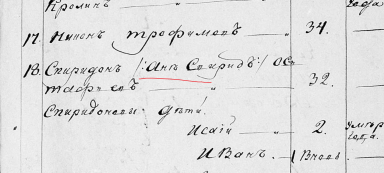 17. Никонъ Трофимовъ — „ 34.
18. Спиридонъ /: Анъ Спиридъ :/ Ос
тафіевъ — „ 32.
Спиридоновы дѣти.
Исаій — „ 2.
Иванъ. — „